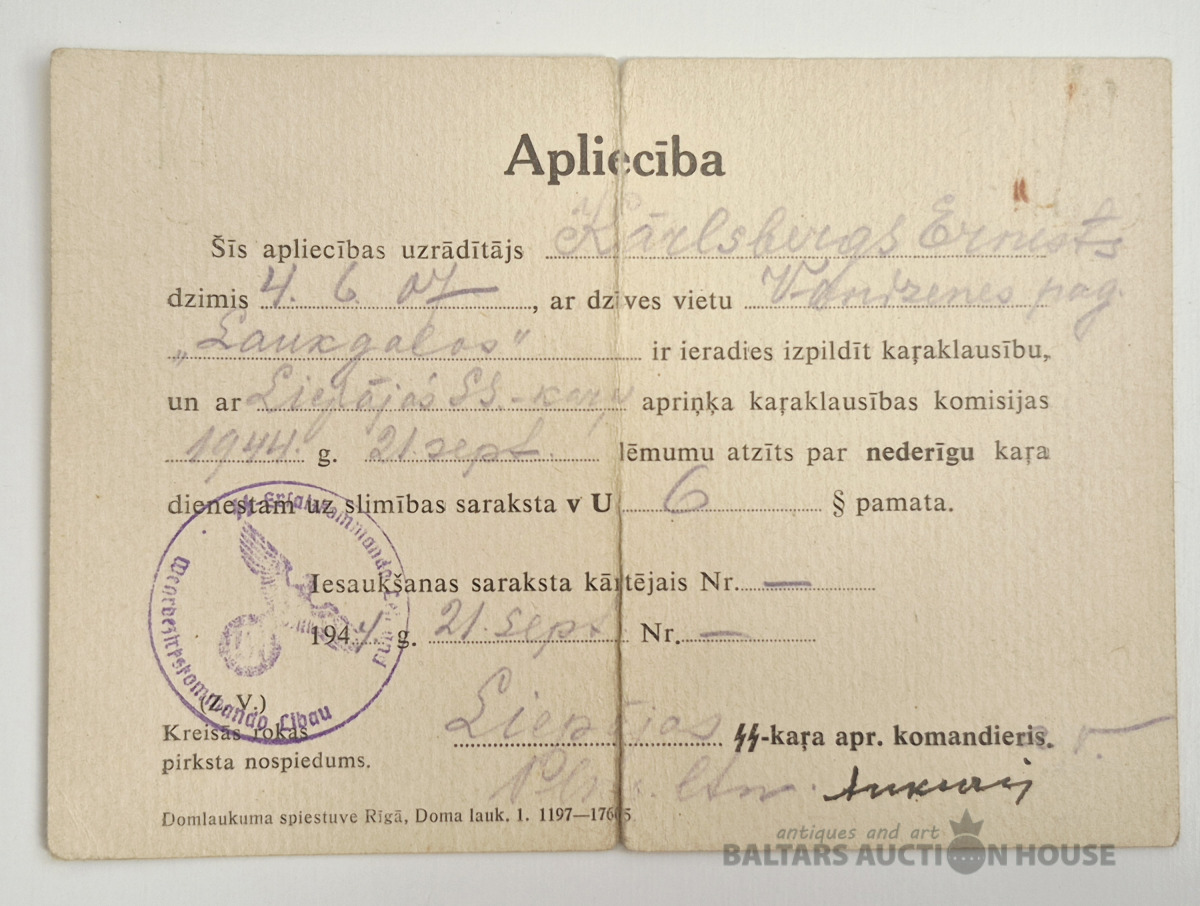 Apliecība
Šīs apliecības uzrādītājs Kārlsbergs Ernests
dzimis 4. 6. 07, ar dzīves vietu Vandzenes pag.
„Laukgalos" ir ieradies izpildīt kaŗaklausību,
un ar Liepājas SS.-kaŗa apriņķa kaŗaklausības komisijas
1944. g. 21. sept. lēmumu atzīts par nederīgu kaŗa
dienestam uz slimības saraksta v U 6 § pamata.
Iesaukšanas saraksta kārtējais Nr. —
1944 g. 21. sept Nr. —
(Z. V.)
Kreisās rokas
pirksta nospiedums.
Liepājas SS-kaŗa apr. komandieris.
ltn.
Domlaukuma spiestuve Rīgā, Doma lauk. 1. 1197—17605
SS-Ersatzkommando
Wehrbezirkskommando Libau
antiques and art
BALTARS AUCTION HOUSE